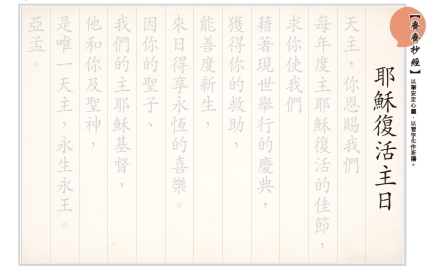 【齊齊抄經】以筆安定心靈，以書字化作祈禱。
耶穌復活主日
天主，你恩賜我們
每年度主耶穌復活的佳節，
求你使我們
藉著現世舉行的慶典，
獲得你的救助，
能善度新生，
來日得享永恆的喜樂。
因你的聖子、
我們的主耶穌基督，
他和你及聖神，
是唯一天主，永生永王。
亞孟。